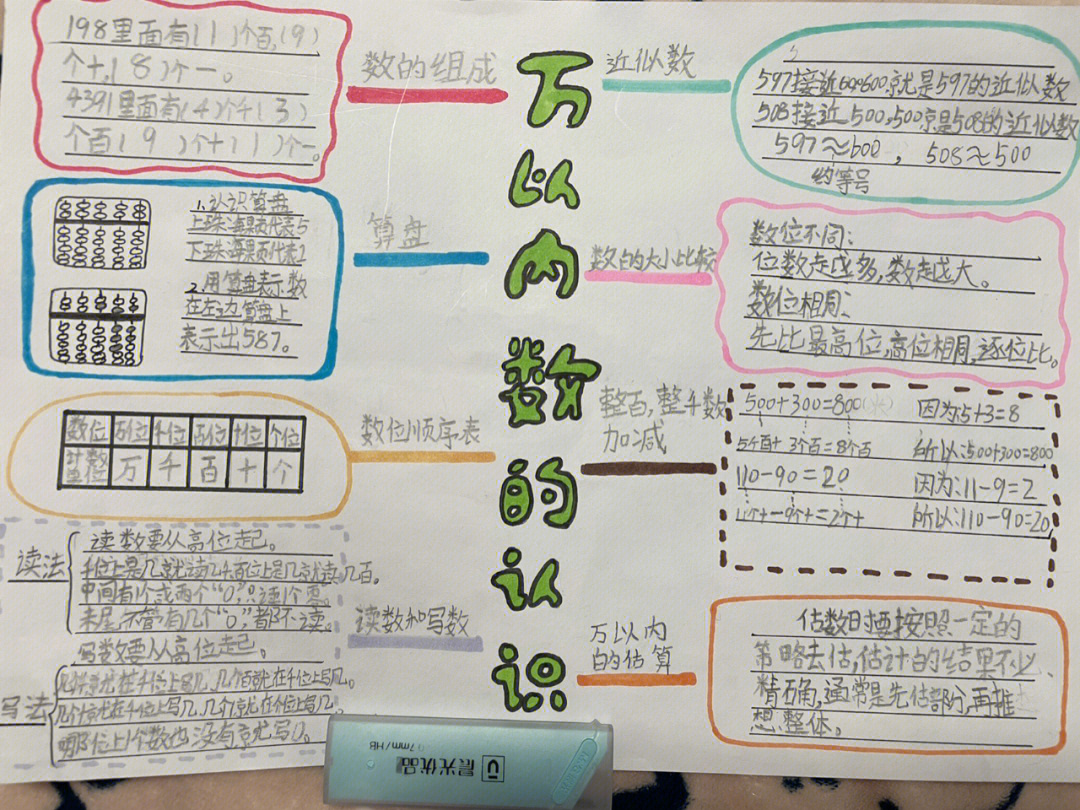 万以内数的认识
数的组成
198里面有(1)个百,(9)
个十,(8)个一。
4391里面有(4)个千(3)
个百(9)个十(1)个一。
算盘
1.认识算盘
上珠海颗代表5
下珠海颗代表1
2.用算盘表示数
在左边算盘上
表示出587。
数位顺序表
数位 万位 千位 百位 十位 个位
计数单位 万 千 百 十 个
读数和写数
读法
读数要从高位起。
千位上是几就读几千百位上是几就读几百。
中间有1个或两个“0”只读1个零。
末尾不管有几个“0”,都不读。
写法
写数要从高位起。
几个千就在千位上写几,几个百就在千位上写几。
几个十就在千位上写几,几个就在个位上写几。
哪位上1个数也没有就写0。
近似数
597接近600就是597的近似数
508接近500,500就是508的近似数
597≈600,508≈500
约等号
数的大小比较
数位不同:
位数越多,数越大。
数位相同:
先比最高位,高位相同,逐位比。
整百,整千数
加减
500+300=800 因为:5+3=8
5个百+3个百=8个百 所以:500+300=800
110-90=20 因为:11-9=2
11个十-9个十=2个十 所以:110-90=20
万以内
的估算
估数时要按照一定的
策略去估,估计的结果不必
精确,通常是先估部分,再推
想整体。
0.7mm/HB
晨光优品